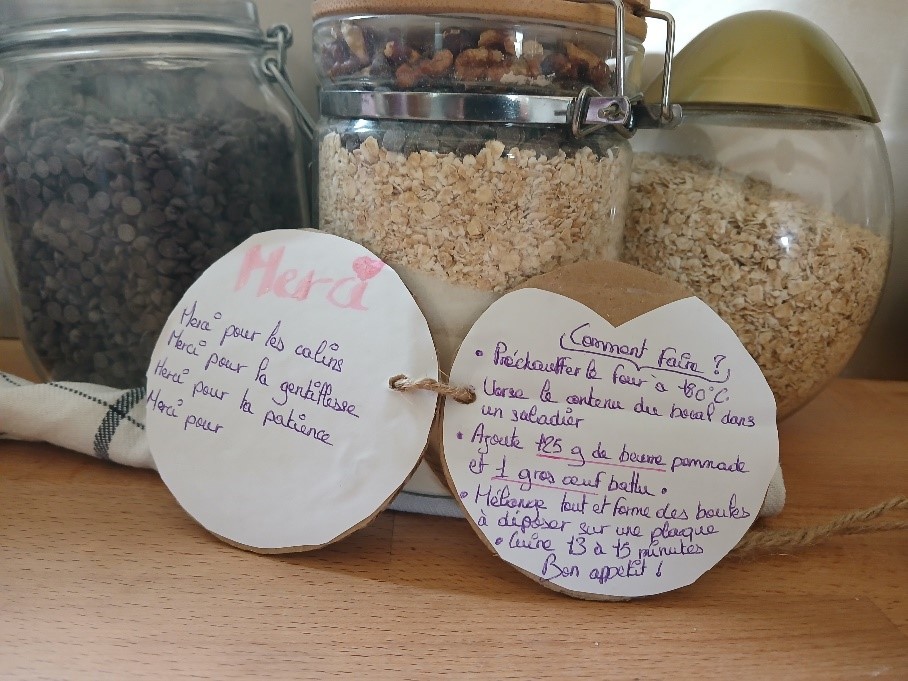 Merci
Merci pour les calins
Merci pour la gentillesse
Merci pour ta patience
Merci pour
Comment faire ?
• Préchauffer le four à 180°C
Verse le contenu du bocal dans
un saladier
• Ajoute 125 g de beurre pommade
et 1 gros œuf battu.
• Mélange tout et forme des boules
à déposer sur une plaque
• Cuire 13 à 15 minutes
Bon appétit !